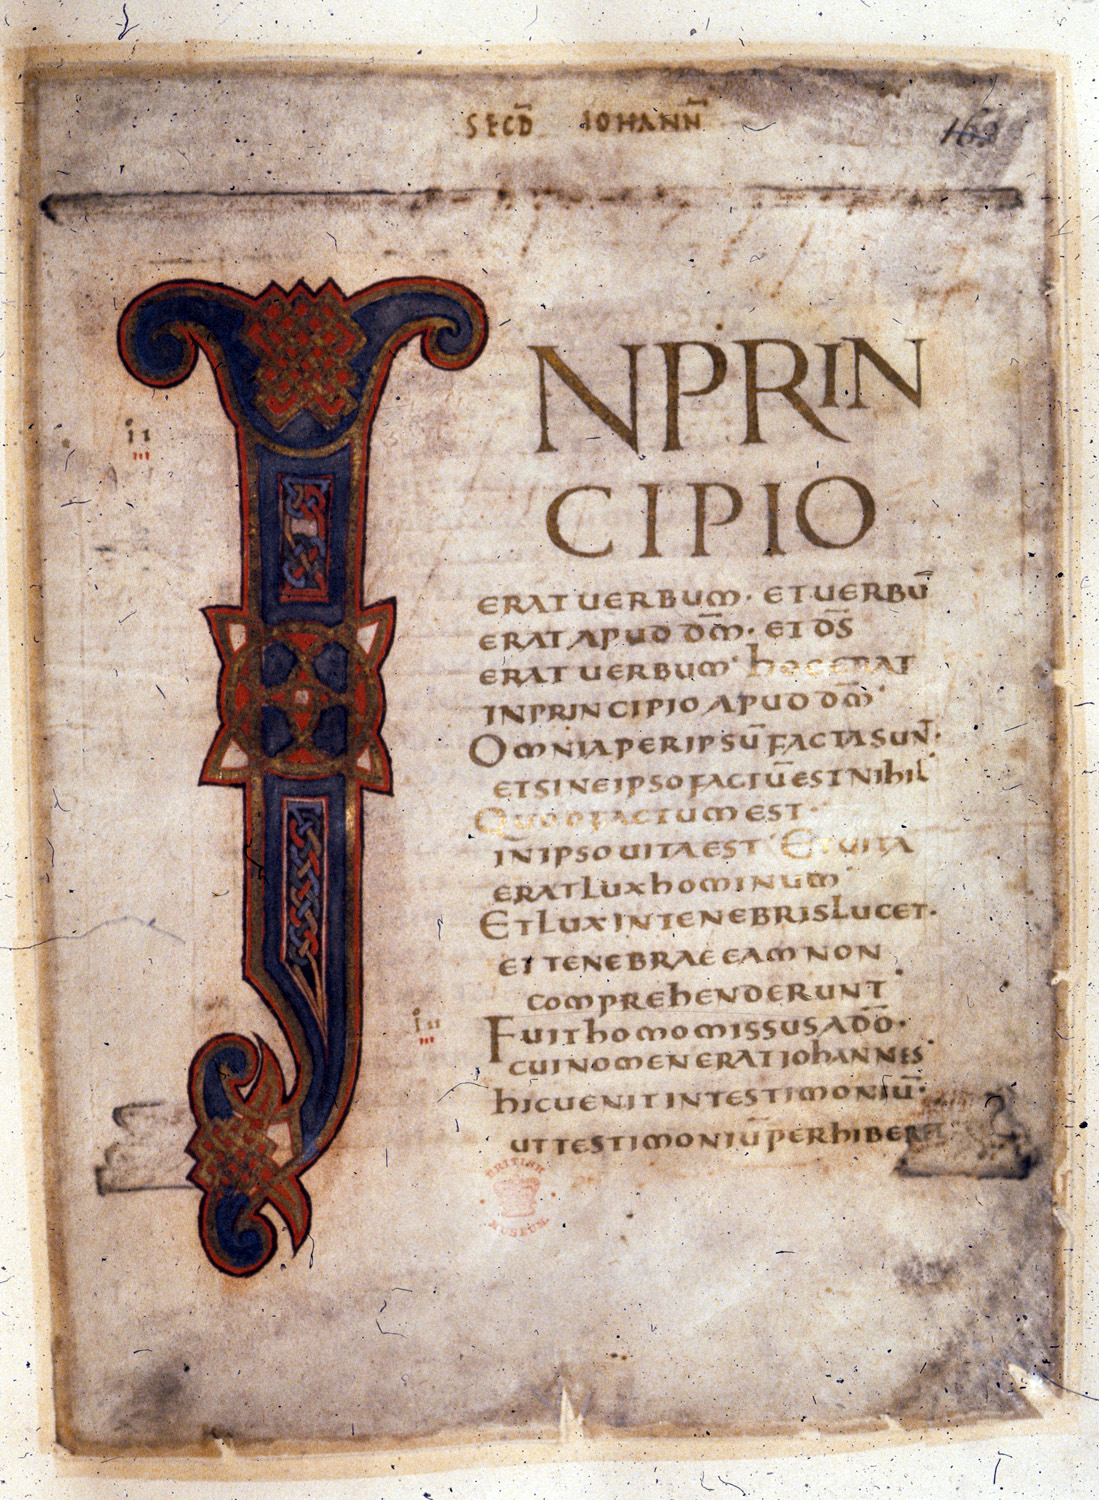 SECD̄ IOHANN̄
163
INPRIN
CIPIO
ERAT UERBUM· ET UERBŪ
ERAT APUD DM̄· ET DS̄
ERAT UERBUM· hOC ERAT
IN PRINCIPIO APUD DM̄·
OMNIA PER IPSŪ FACTA SUNT·
ET SINE IPSO FACTŪ EST NIhIL·
QUOD FACTUM EST·
IN IPSO UITA EST· ET UITA
ERAT LUX hOMINUM·
ET LUX IN TENEBRIS LUCET·
ET TENEBRAE EAM NON
COMPREhENDERUNT·
FUIT hOMO MISSUS A DŌ·
CUI NOMEN ERAT IOhANNES·
hIC UENIT IN TESTIMONIŪ·
UT TESTIMONIŪ PERhIBER
ii
iii
iu
iii
BRITISH
MUSEUM